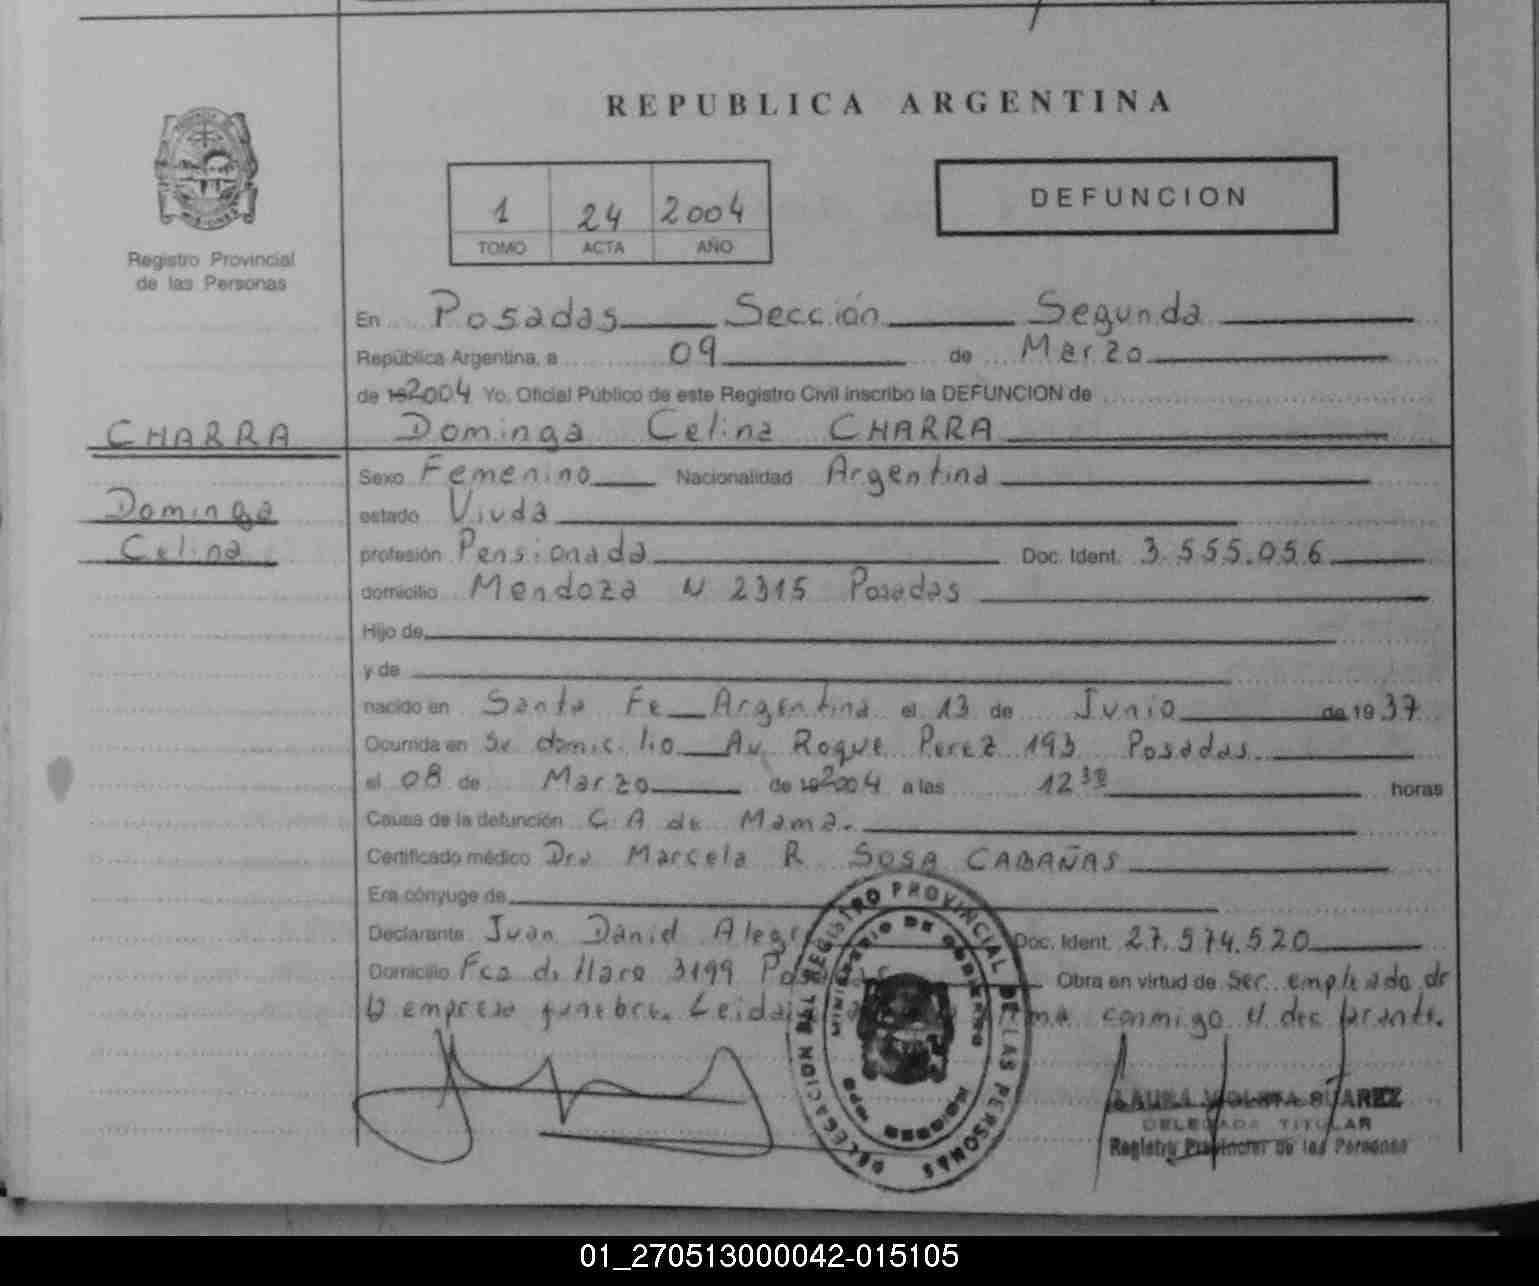 REPUBLICA ARGENTINA
1 24 2004
TOMO ACTA AÑO
DEFUNCION
Registro Provincial
de las Personas
En Posadas Sección Segunda
República Argentina, a 09 de Marzo
de 192004 Yo, Oficial Público de este Registro Civil inscribo la DEFUNCION de
CHARRA
Dominga Celina CHARRA
Dominga
Celina
Sexo Femenino Nacionalidad Argentina
estado Viuda
profesión Pensionada Doc. Ident. 3.555.056
domicilio Mendoza N 2315 Posadas
Hijo de
y de
nacido en Santa Fe Argentina el 13 de Junio de 1937
Ocurrida en Su domicilio Av Roque Perez 193 Posadas
el 08 de Marzo de 192004 a las 12 30 horas
Causa de la defunción C A de Mama.
Certificado médico Dra Marcela R SOSA CABAÑAS
Era cónyuge de
Declarante Juan David Doc. Ident. 27.574.520
Domicilio Fco de Haro 3199 Obra en virtud de Ser empleado de
la empresa funebre. conmigo el declarante.
DELEGACION DEL REGISTRO PROVINCIAL DE LAS PERSONAS
MINISTERIO DE GOBIERNO
LAURA VIOLETA SUAREZ
DELEGADA TITULAR
Registro Provincial de las Personas
01_270513000042-015105